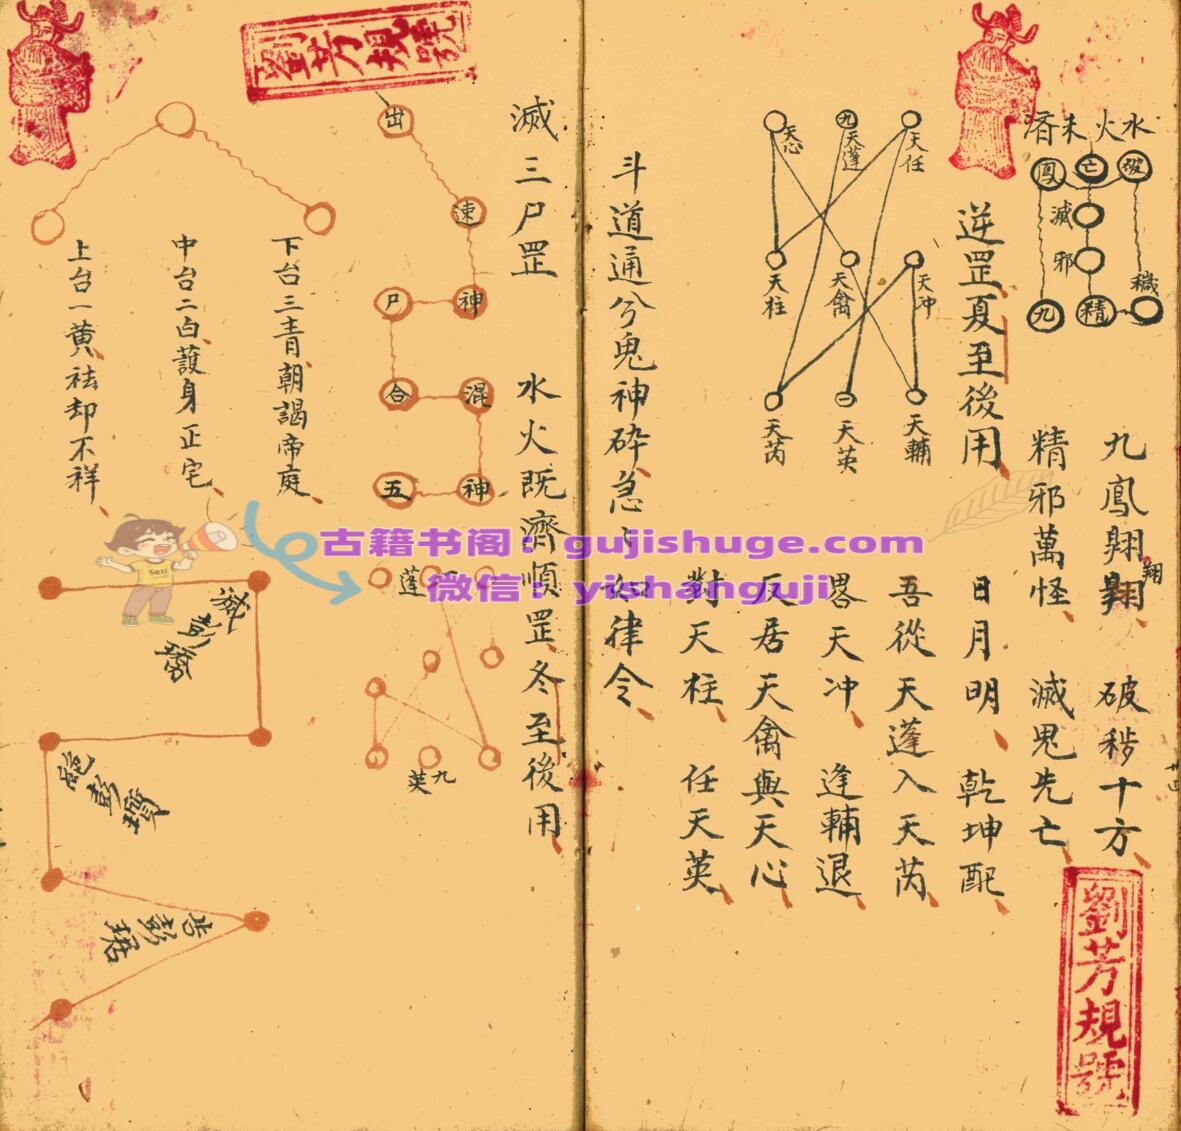 水火未濟
破
亡
鳳
滅
邪
穢
精
九
九鳳翔翔
翔
破秽十方
精邪萬怪
滅鬼先亡
逆罡夏至後用
日月明
乾坤配
天任
九
天蓬
天心
天冲
天禽
天柱
天輔
一
天英
天芮
吾從天蓬入天芮
畧天冲
逢輔退
反居天禽與天心
對天柱
任天英
斗道通兮鬼神碎急〻如律令
劉芳規號
劉芳規號
滅三尸罡
水火既濟順罡冬至後用
出
速
神
尸
合
混
神
五
蓬
英
九
下台三青朝謁帝庭
中台二白護身正宅
上台一黄祛却不祥
彭
彭
彭
古籍书阁：gujishuge.com
微信：yishanguji